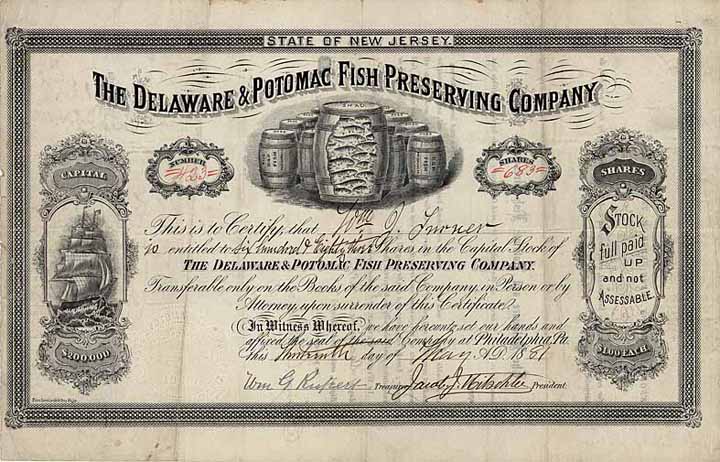 STATE OF NEW JERSEY.
THE DELAWARE & POTOMAC FISH PRESERVING COMPANY
SHAD
NUMBER
423
SHARES
683
CAPITAL
$300,000
SHARES
STOCK
full paid
UP
and not
ASSESSABLE.
$100 EACH
This is to Certify, that Wm J. Turner
is entitled to Six hundred & Eighty three Shares in the Capital Stock of
THE DELAWARE & POTOMAC FISH PRESERVING COMPANY.
Transferable only on the Books of the said Company, in Person or by
Attorney, upon surrender of this Certificate.
In Witness Whereof, we have hereunto set our hands and
affixed the seal of the said Company at Philadelphia, Pa.
this day of May A.D. 188
Wm G Treasurer Jacob J. President